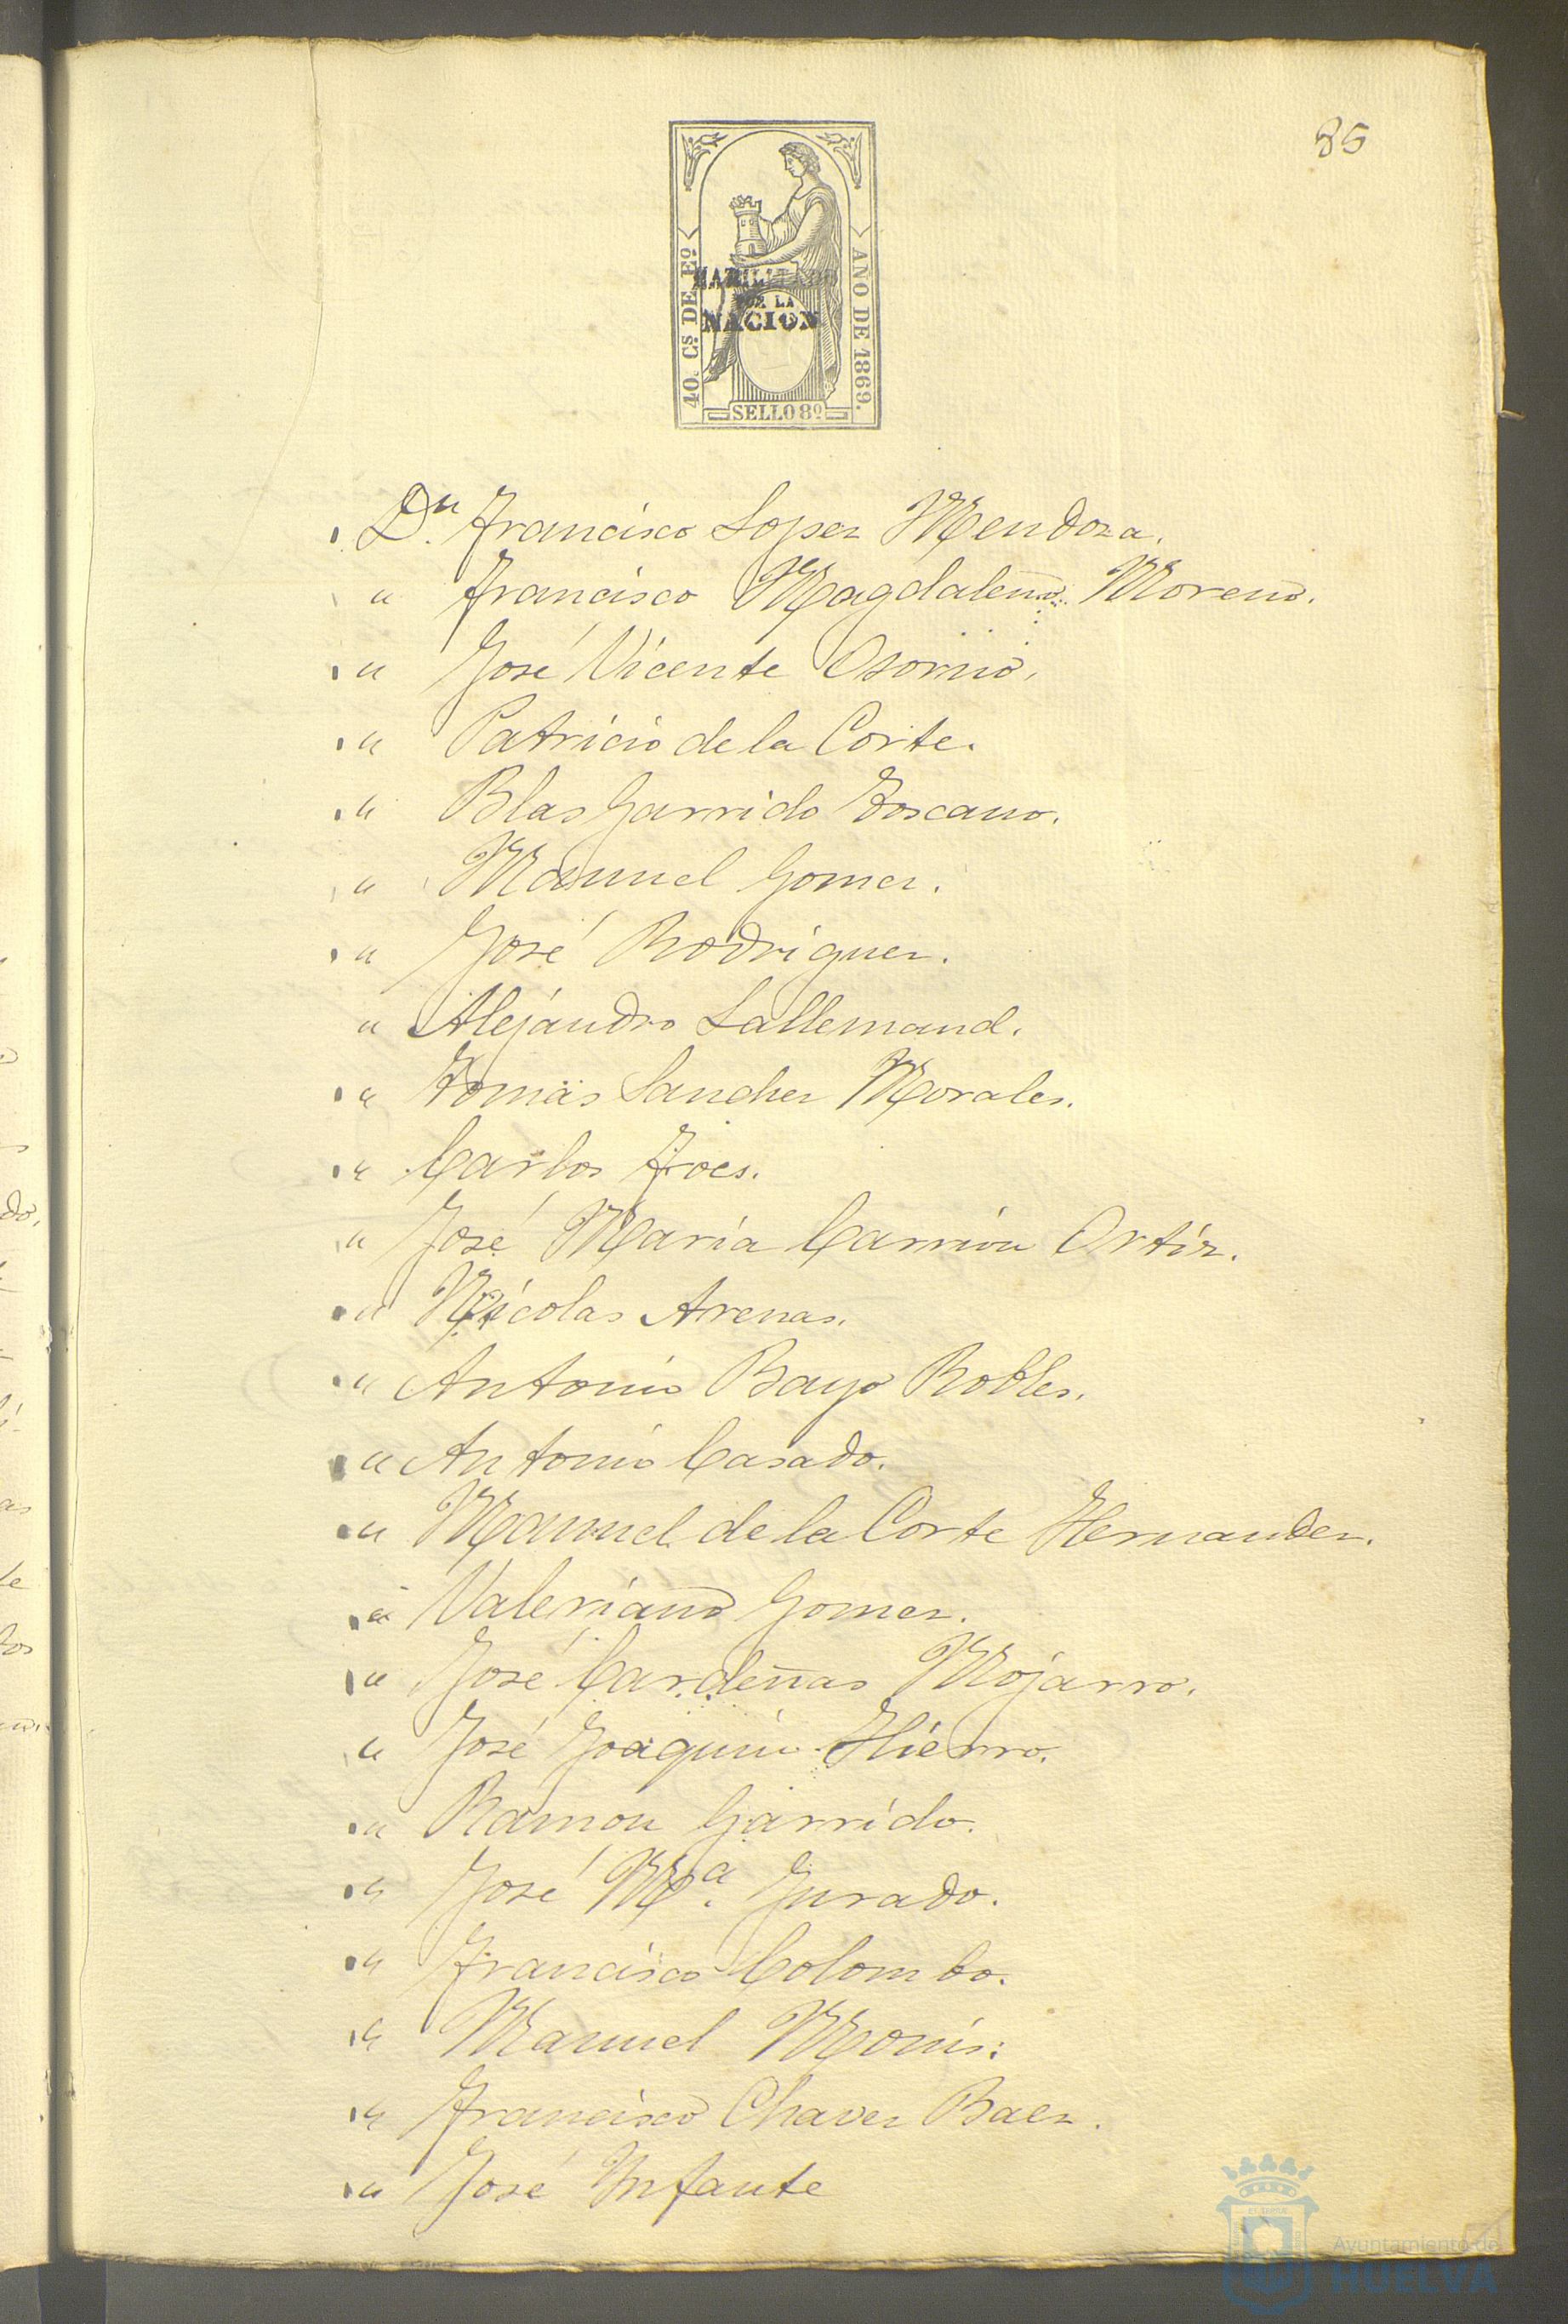 85
40. Cs. DE Eº.
AÑO DE 1869.
HABILITADO
POR LA
NACION
SELLO 8º
Dn. Francisco Lopez Mendoza.
" Francisco Magdaleno Moreno.
" José Vicente Osorno.
" Patricio de la Corte.
" Blas Garrido Toscano.
" Manuel Gomez.
" José Rodriguez.
" Alejandro Lallemand.
" Tomás Sanchez Morales.
" Carlos
" José Maria Carrion Ortiz.
" Nicolas Arenas.
" Antonio Bayo Robles.
" Antonio Casado.
" Manuel de la Corte Hernandez.
" Valeriano Gomez.
" José Cardeñas Mojarro.
" José Joaquin Hierro.
" Ramon Garrido.
" José Mª. Jurado.
" Francisco Colombo.
" Manuel Monis.
" Francisco Chavez Baez.
" José Infante
Ayuntamiento de
HUELVA